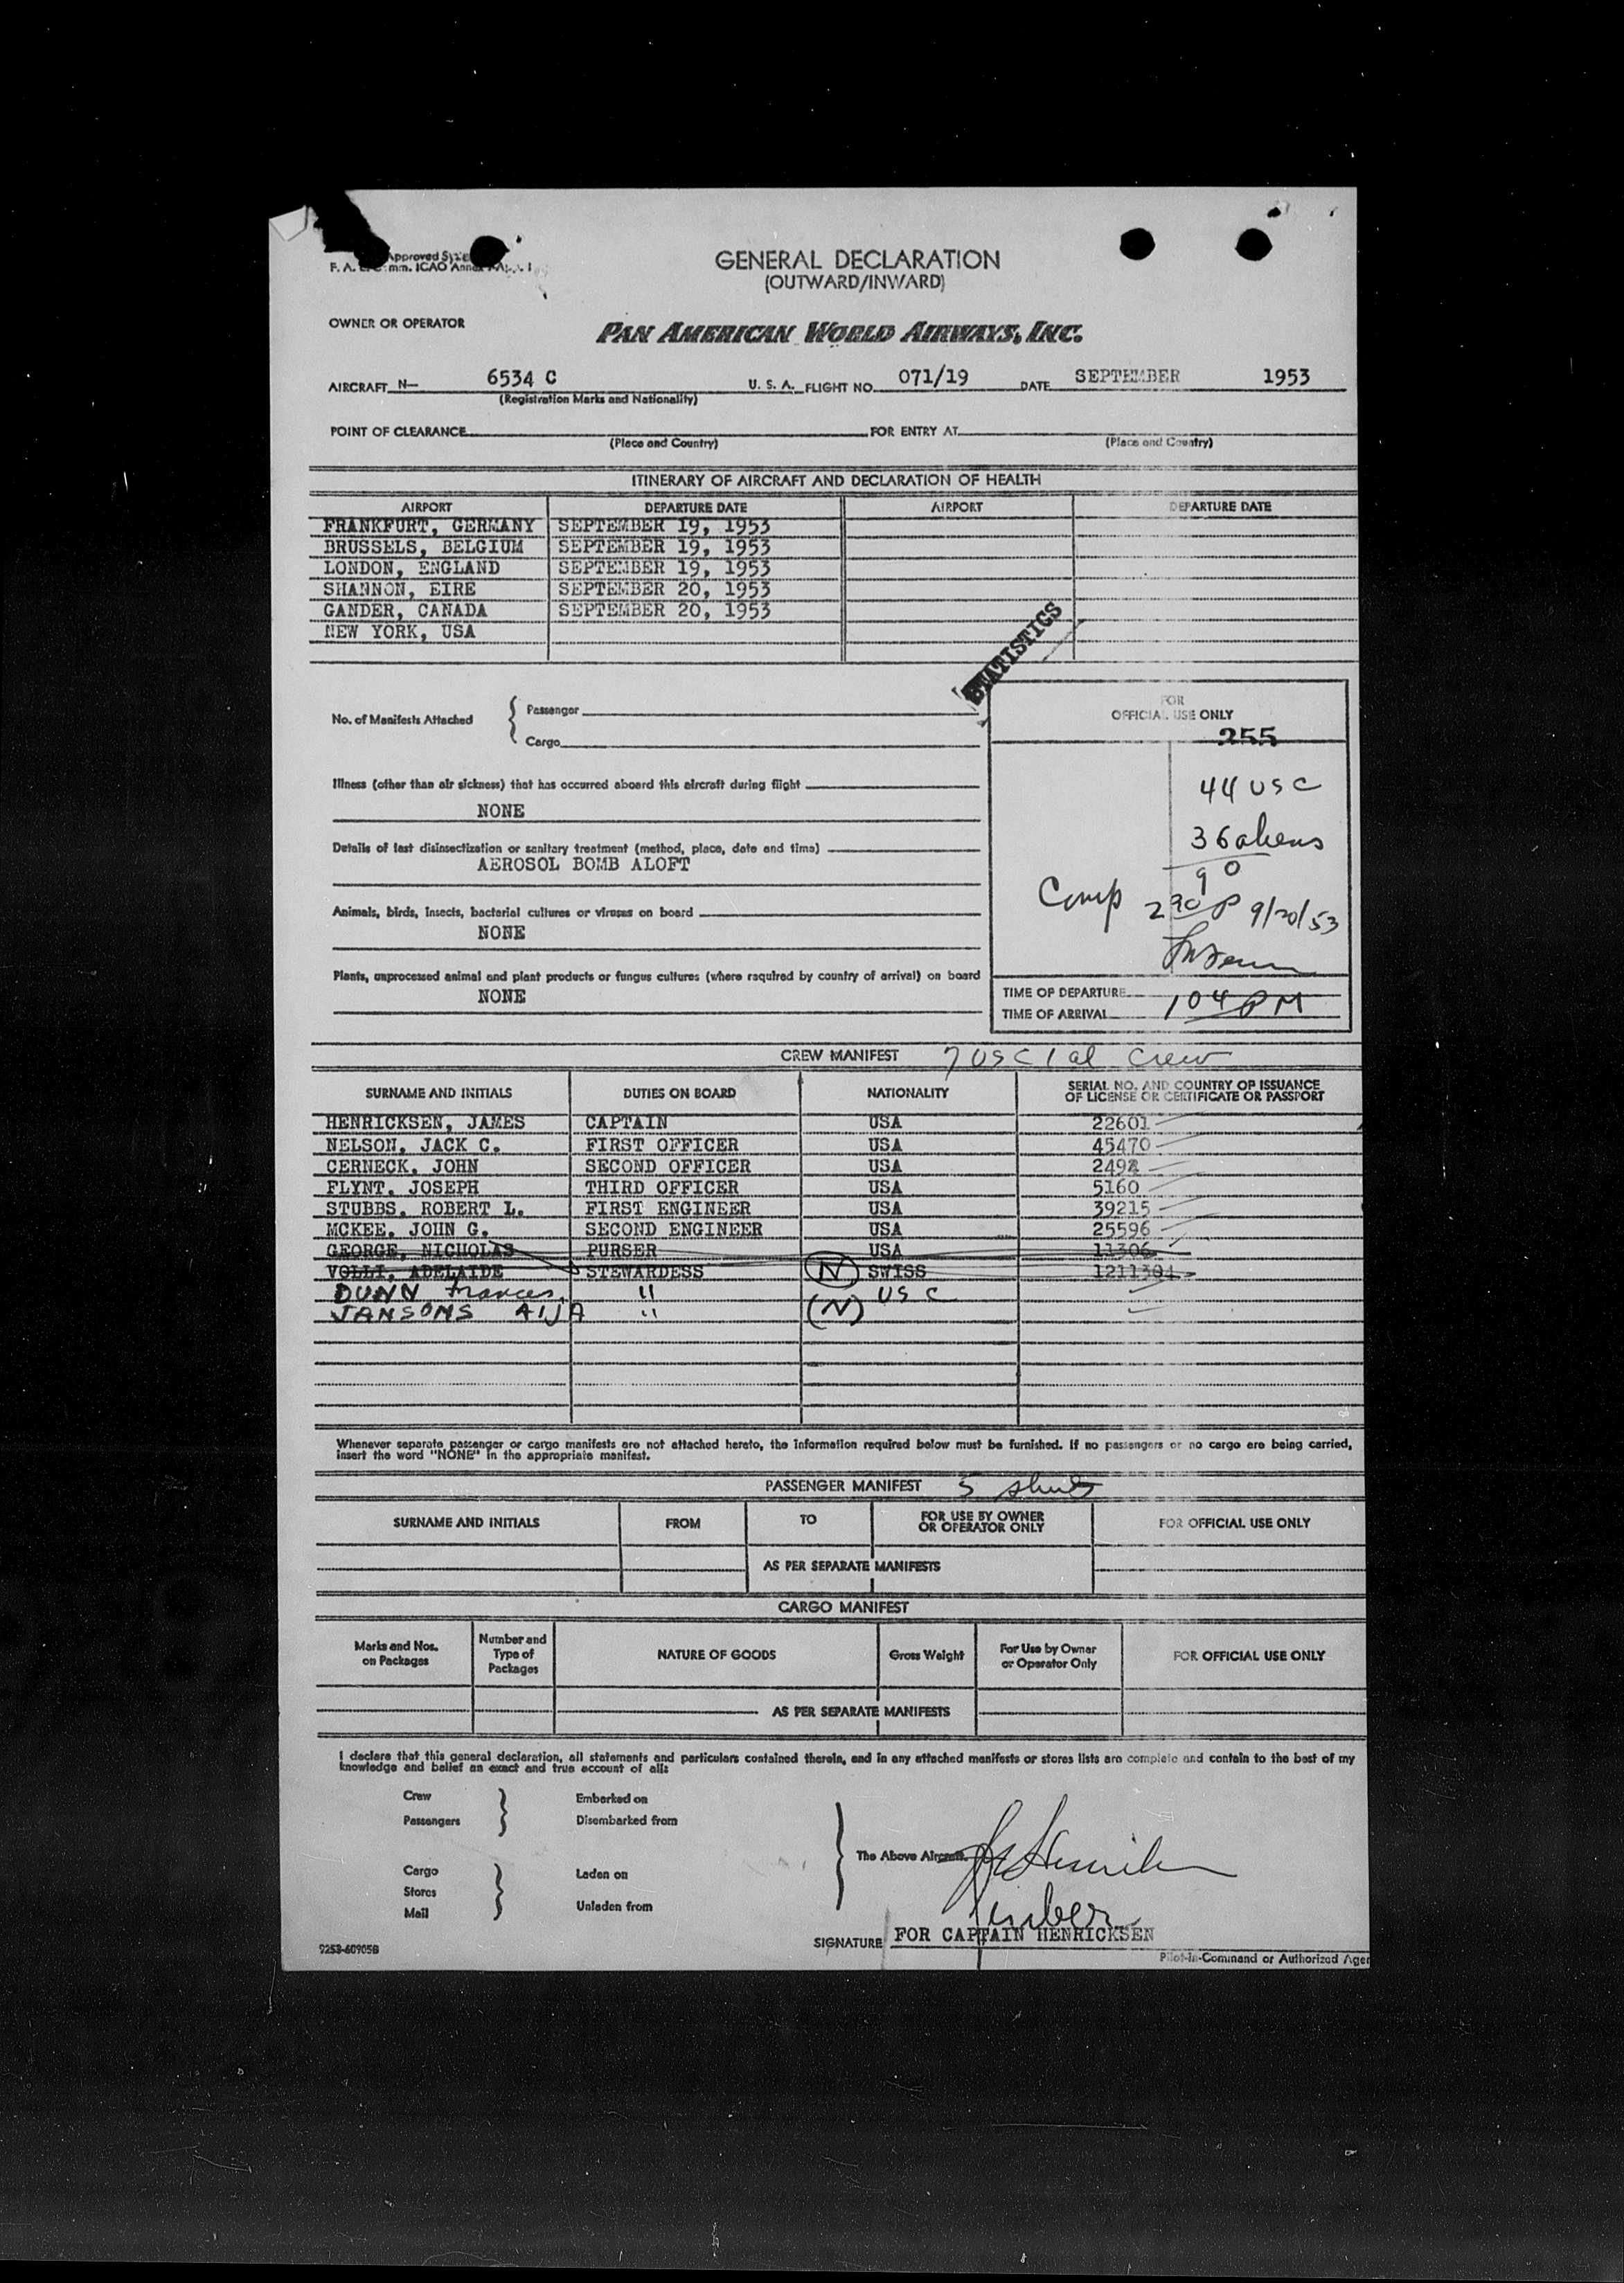 GENERAL DECLARATION
(OUTWARD/INWARD)
Approved
F. A. mm. ICAO Annex
OWNER OR OPERATOR
PAN AMERICAN WORLD AIRWAYS, INC.
AIRCRAFT N— 6534 C U. S. A. FLIGHT NO. 071/19 DATE SEPTEMBER 1953
(Registration Marks and Nationality)
POINT OF CLEARANCE FOR ENTRY AT
(Place and Country) (Place and Country)
ITINERARY OF AIRCRAFT AND DECLARATION OF HEALTH
AIRPORT DEPARTURE DATE AIRPORT DEPARTURE DATE
FRANKFURT, GERMANY SEPTEMBER 19, 1953
BRUSSELS, BELGIUM SEPTEMBER 19, 1953
LONDON, ENGLAND SEPTEMBER 19, 1953
SHANNON, EIRE SEPTEMBER 20, 1953
GANDER, CANADA SEPTEMBER 20, 1953
NEW YORK, USA
STATISTICS
No. of Manifests Attached
Passenger
Cargo
FOR
OFFICIAL USE ONLY
255
44 USC
36 aliens
90
Comp 230 P 9/20/53
TIME OF DEPARTURE
TIME OF ARRIVAL 104 PM
Illness (other than air sickness) that has occurred aboard this aircraft during flight
NONE
Details of last disinsectization or sanitary treatment (method, place, date and time)
AEROSOL BOMB ALOFT
Animals, birds, insects, bacterial cultures or viruses on board
NONE
Plants, unprocessed animal and plant products or fungus cultures (where required by country of arrival) on board
NONE
CREW MANIFEST 7 USC 1 al Crew
SURNAME AND INITIALS DUTIES ON BOARD NATIONALITY SERIAL NO. AND COUNTRY OF ISSUANCE
OF LICENSE OR CERTIFICATE OR PASSPORT
HENRICKSEN, JAMES CAPTAIN USA 22601
NELSON, JACK C. FIRST OFFICER USA 45470
CERNECK, JOHN SECOND OFFICER USA 2492
FLYNT, JOSEPH THIRD OFFICER USA 5160
STUBBS, ROBERT L. FIRST ENGINEER USA 39215
MCKEE, JOHN G. SECOND ENGINEER USA 25596
GEORGE, NICHOLAS PURSER USA 11306
VOLLI, ADELAIDE STEWARDESS (N) SWISS 1211304
DUNN Frances, " USC
JANSONS AIJA " (N)
Whenever separate passenger or cargo manifests are not attached hereto, the information required below must be furnished. If no passengers or no cargo are being carried,
insert the word "NONE" in the appropriate manifest.
PASSENGER MANIFEST 5
SURNAME AND INITIALS FROM TO FOR USE BY OWNER
OR OPERATOR ONLY FOR OFFICIAL USE ONLY
AS PER SEPARATE MANIFESTS
CARGO MANIFEST
Marks and Nos.
on Packages
Number and
Type of
Packages
NATURE OF GOODS
Gross Weight
For Use by Owner
or Operator Only
FOR OFFICIAL USE ONLY
AS PER SEPARATE MANIFESTS
I declare that this general declaration, all statements and particulars contained therein, and in any attached manifests or stores lists are complete and contain to the best of my
knowledge and belief an exact and true account of all:
Crew Embarked on
Passengers Disembarked from
The Above Aircraft.
Cargo Laden on
Stores
Mail Unladen from
SIGNATURE FOR CAPTAIN HENRICKSEN
9253-60905B
Pilot-in-Command or Authorized Agen